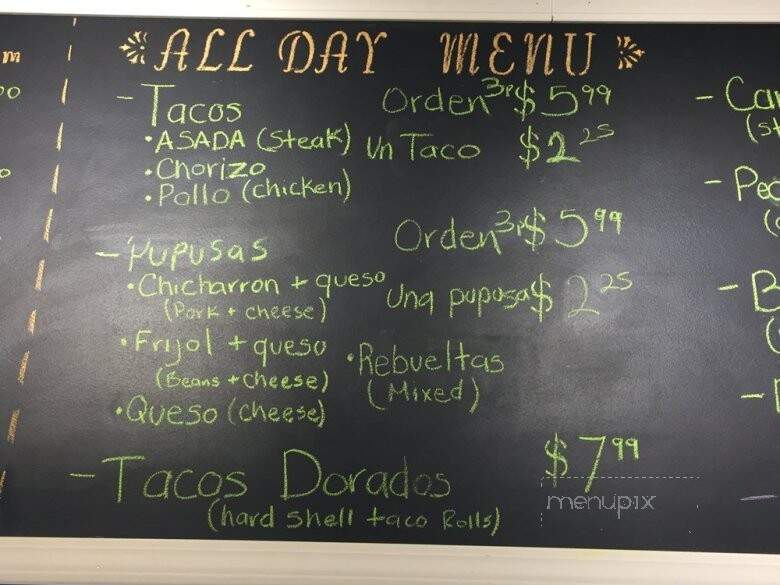 ALL DAY MENU
- Tacos Orden 3pr $5 99
• ASADA (Steak) Un Taco $2 25
• Chorizo
• Pollo (chicken)
- Pupusas Orden 3pr $5 99
• Chicharron + queso Una pupusa $2 25
(Pork + cheese)
• Frijol + queso • Rebueltas
(Beans + cheese) (Mixed)
• Queso (cheese)
- Tacos Dorados $7 99
(hard shell taco Rolls)
menupix